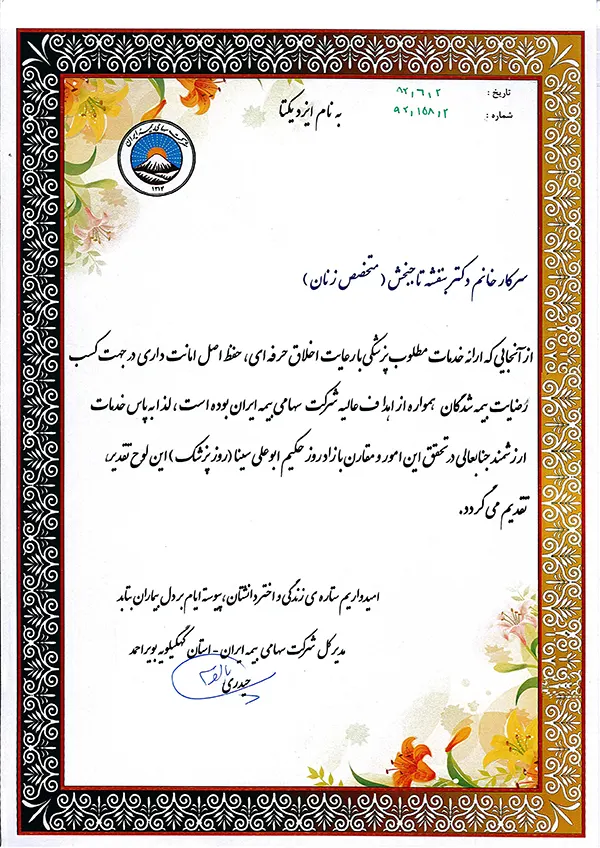 به نام ایزد یکتا
تاریخ : ۹۲٫۶٫۲
شماره : ۹۲٫۱۵۸٫۲
شرکت سهامی بیمه ایران
۱۳۱۴
سرکار خانم دکتر بنفشه تاجبخش ( متخصص زنان )
از آنجایی که ارائه خدمات مطلوب پزشکی با رعایت اخلاق حرفه ای ، حفظ اصل امانت داری در جهت کسب
رضایت بیمه شدگان همواره از اهداف عالیه شرکت سهامی بیمه ایران بوده است ، لذا به پاس خدمات
ارزشمند جنابعالی در تحقق این امور و مقارن با زادروز حکیم ابو علی سینا (روز پزشک) این لوح تقدیر،
تقدیم می گردد.
امیدواریم ستاره ی زندگی و اختر دانشتان، پیوسته ایام بر دل بیماران بتابد
مدیر کل شرکت سهامی بیمه ایران - استان کهگیلویه بویراحمد
حیدری